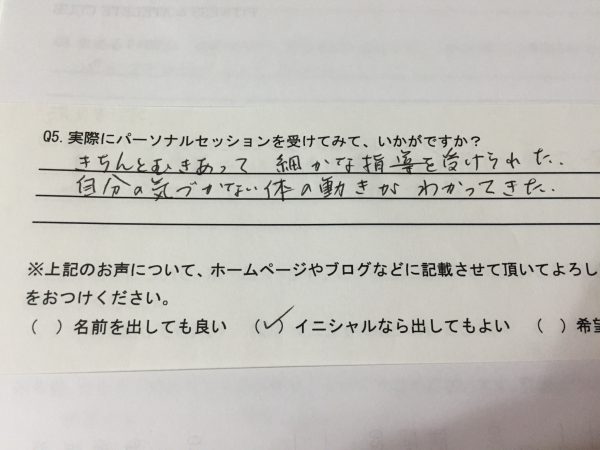 Q5. 実際にパーソナルセッションを受けてみて、いかがですか？
きちんとむきあって 細かな指導を受けられた.
自分の気づかない体の動きが わかってきた.
※上記のお声について、ホームページやブログなどに記載させて頂いてよろし
をおつけください。
（ ）名前を出しても良い （✓）イニシャルなら出してもよい （ ）希望